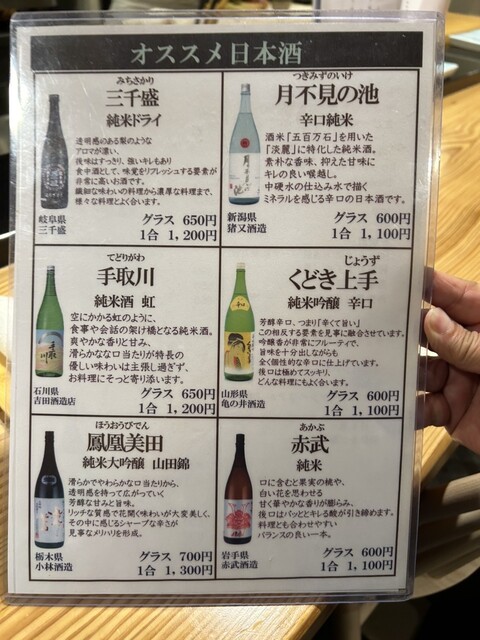 オススメ日本酒
みちさかり
三千盛
純米ドライ
透明感のある梨のような
アロマが漂い、
後味はすっきり、強いキレもあり
食中酒として、味覚をリフレッシュする要素が
非常に高いお酒です。
繊細な味わいの料理から濃厚な料理まで、
様々な料理とよく合います。
岐阜県
三千盛
グラス 650円
1合 1,200円
つきみずのいけ
月不見の池
辛口純米
酒米「五百万石」を用いた
「淡麗」に特化した純米酒。
素朴な香味、抑えた甘味に
キレの良い喉越し。
中硬水の仕込み水で描く
ミネラルを感じる辛口の日本酒です。
新潟県
猪又酒造
グラス 600円
1合 1,100円
てどりがわ
手取川
純米酒 虹
空にかかる虹のように、
食事や会話の架け橋となる純米酒。
爽やかな香りと甘み、
滑らかな口当たりが特長の
優しい味わいは主張し過ぎず、
お料理にそっと寄り添います。
石川県
吉田酒造店
グラス 650円
1合 1,200円
じょうず
くどき上手
純米吟醸 辛口
芳醇辛口、つまり「辛くて旨い」
この相反する要素を見事に融合させています。
吟醸香が非常にフルーティで、
旨味を十分出しながらも
全く個性的な辛口に仕上げています。
後口は極めてスッキリ、
どんな料理にもよく合います。
山形県
亀の井酒造
グラス 600円
1合 1,100円
ほうおうびでん
鳳凰美田
純米大吟醸 山田錦
滑らかでやわらかな口当たりから、
透明感を持って広がっていく
芳醇な甘みと旨味。
リッチな質感で花開く味わいが大変美しく、
その中に感じるシャープな辛さが
見事なメリハリを形成。
栃木県
小林酒造
グラス 700円
1合 1,300円
あかぶ
赤武
純米
口に含むと果実の桃や、
白い花を思わせる
甘く華やかな香りが膨らみ、
後口はパッとキレる酸が引き締めます。
料理とも合わせやすい
バランスの良い一本。
岩手県
赤武酒造
グラス 600円
1合 1,100円